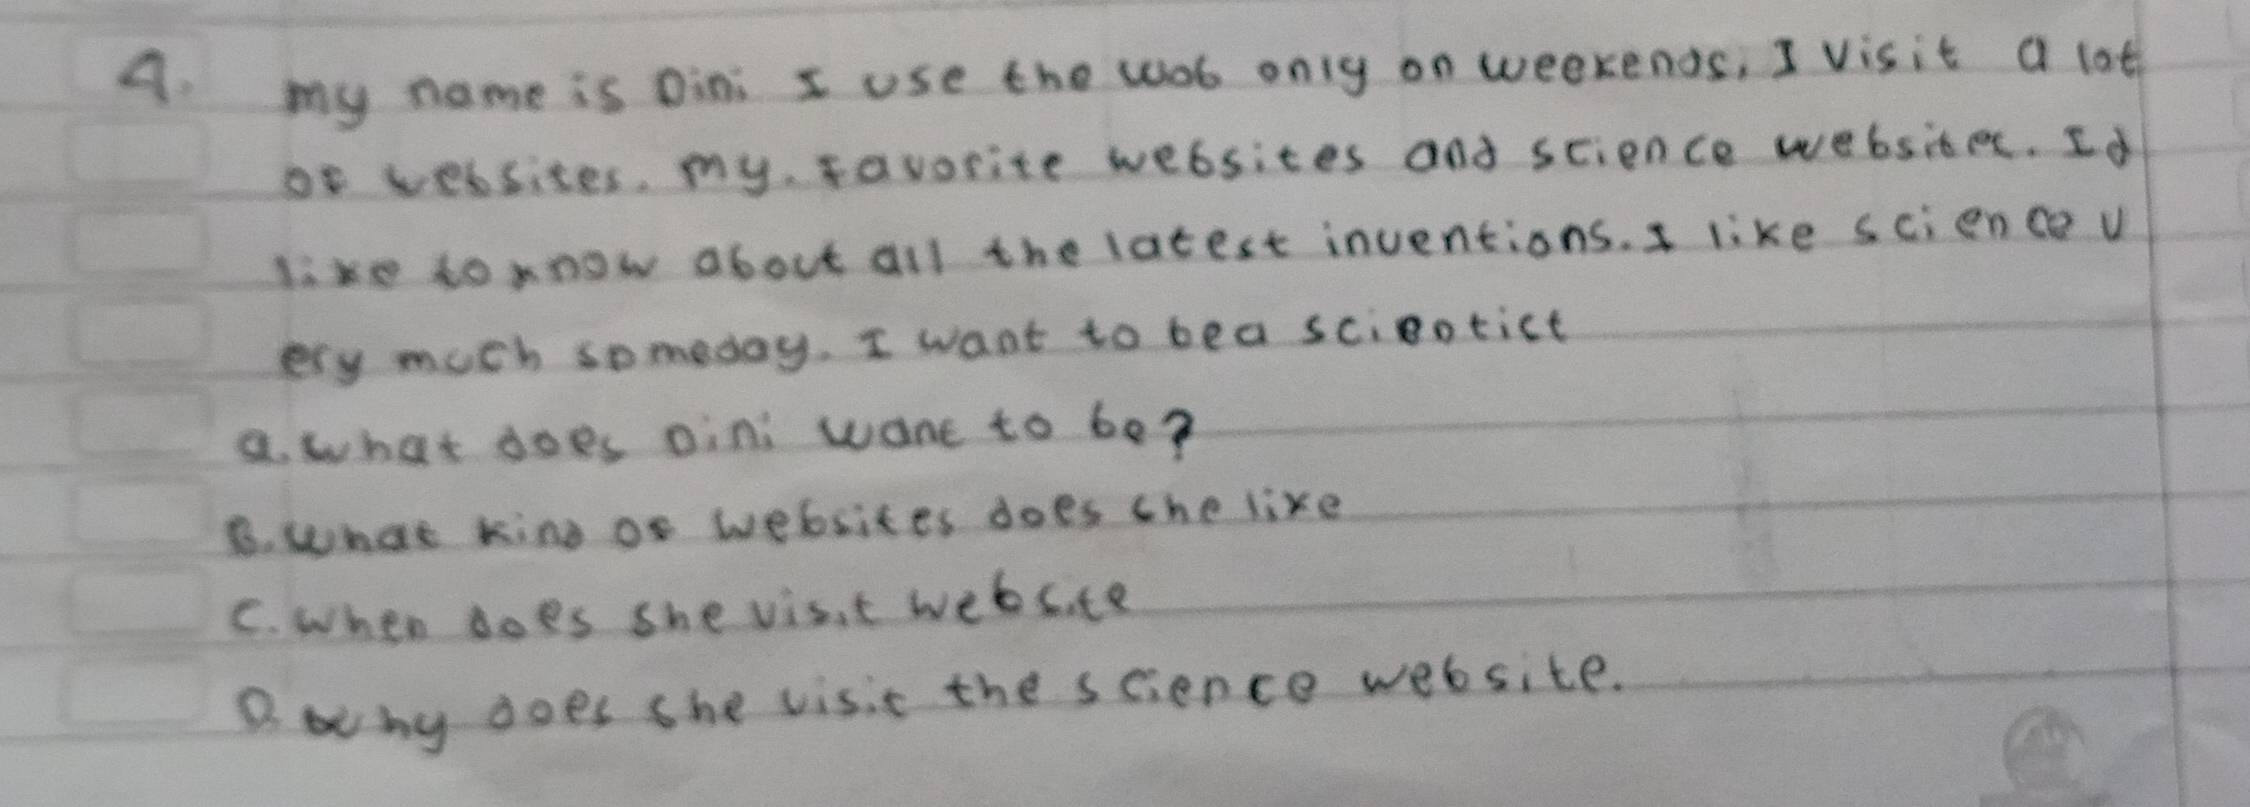 4. my name is Dini I use the web only on weekends, I visit a lot
of websites. my. favorite websites and science websites. Id
like to know about all the latest inventions. I like science v
ery much someday. I want to be a scientist
a. what does Dini want to be?
B. what kind of websites does she like
C. when does she visit website
D. why does she visit the science website.